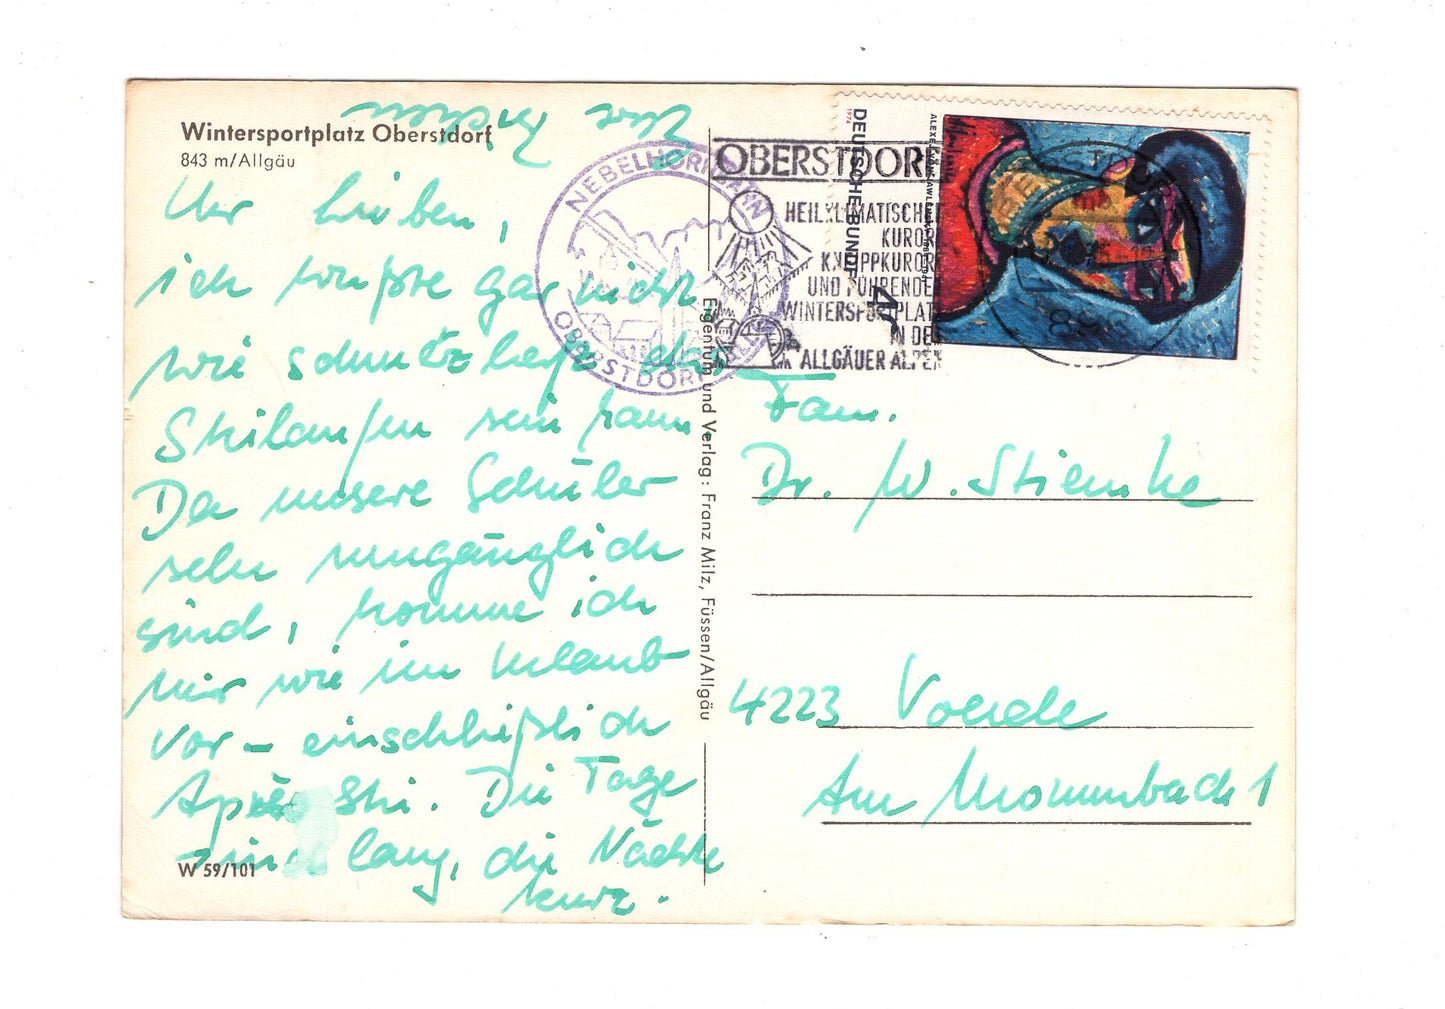 Wintersportplatz Oberstdorf
843 m/Allgäu
Ihr Lieben,
ich wußte gar nicht
wie schmerzhaft das
Skilaufen sein kann.
Da unsere Schüler
sehr umgänglich
sind, komme ich
mir wie im Urlaub
vor – einschließlich
Après Ski. Die Tage
sind lang, die Nächte
kurz.
W 59/101
Eigentum und Verlag: Franz Milz, Füssen/Allgäu
NEBELHORNBAHN
OBERSTDORF
OBERSTDORF
HEILKLIMATISCHER
KURORT
KNEIPPKURORT
UND FÜHRENDER
WINTERSPORTPLATZ
IN DEN
ALLGÄUER ALPEN
DEUTSCHE BUNDE
1974
Fam.
Dr. W. Stiemke
4223 Voerde
Am Mommbach 1